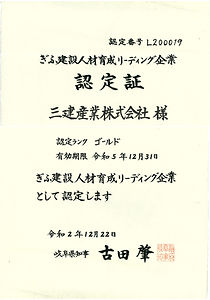 認定番号 L200019
ぎふ建設人材育成リーディング企業
認定証
三建産業株式会社 様
認定ランク ゴールド
有効期限 令和5年12月31日
ぎふ建設人材育成リーディング企業
として認定します
令和2年12月22日
岐阜県知事 古田 肇